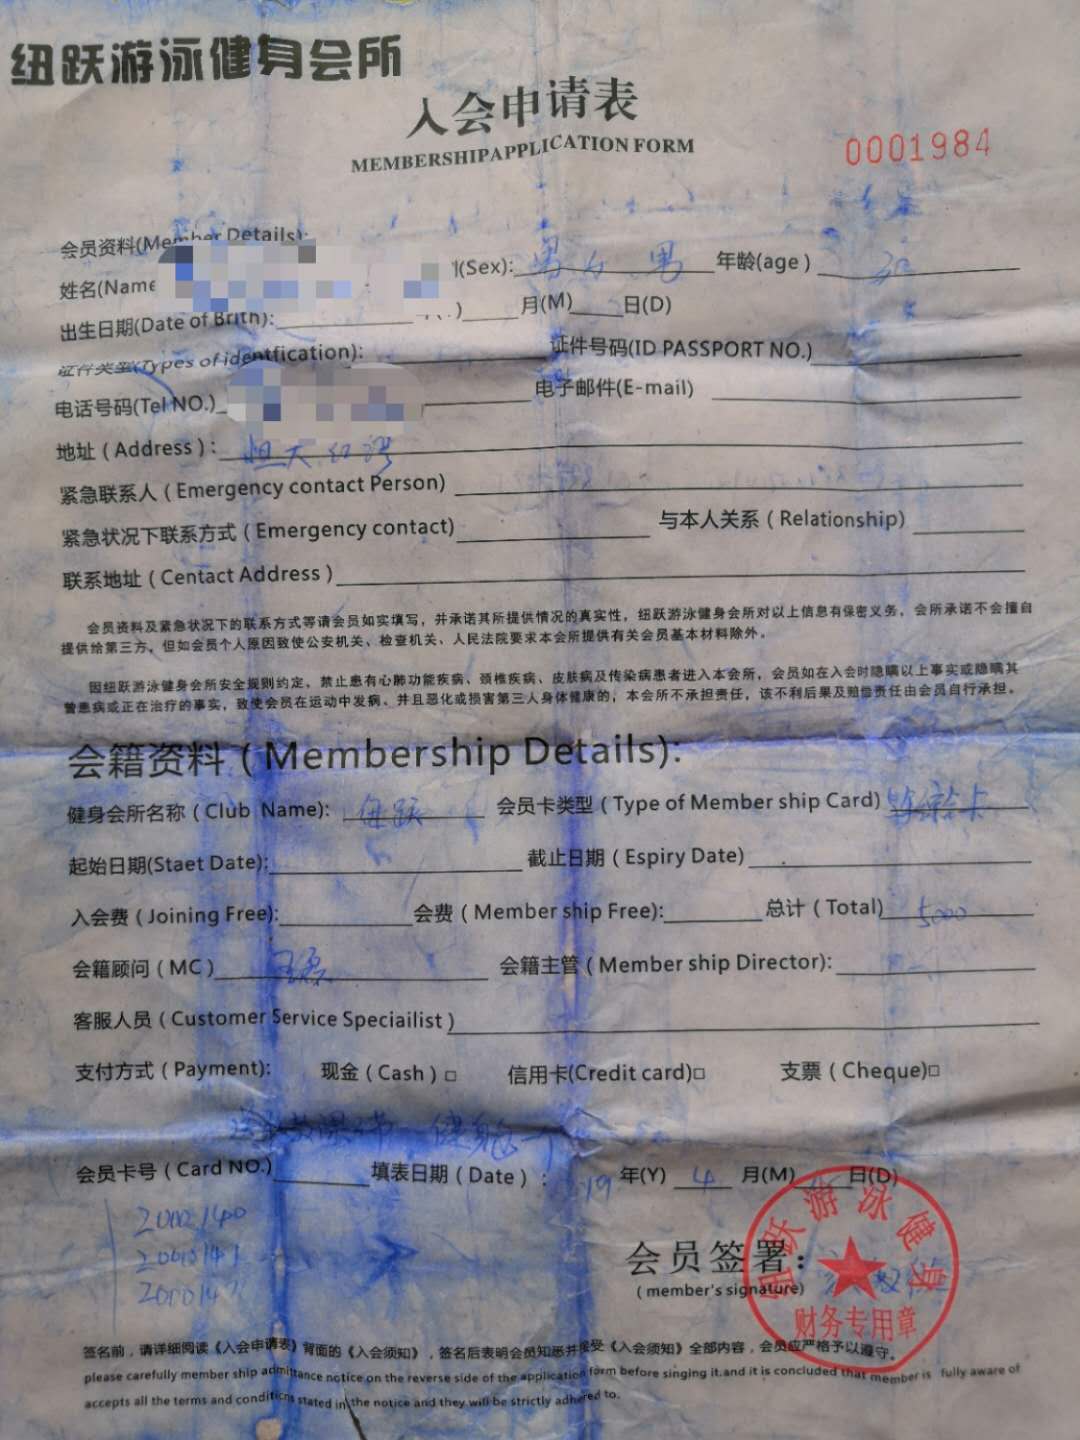 纽跃游泳健身会所
入会申请表
MEMBERSHIPAPPLICATION FORM
0001984
会员资料(Member Details):
姓名(Name (Sex): 男 女 男 年龄(age)
出生日期(Date of Brith): 月(M) 日(D)
证件类型(Types of identfication): 证件号码(ID PASSPORT NO.)
电话号码(Tel NO.) 电子邮件(E-mail)
地址(Address): 恒大红湾
紧急联系人(Emergency contact Person)
紧急状况下联系方式(Emergency contact) 与本人关系(Relationship)
联系地址(Centact Address)
会员资料及紧急状况下的联系方式等请会员如实填写，并承诺其所提供情况的真实性，纽跃游泳健身会所对以上信息有保密义务，会所承诺不会擅自
提供给第三方，但如会员个人原因致使公安机关、检查机关、人民法院要求本会所提供有关会员基本材料除外。
因纽跃游泳健身会所安全规则约定，禁止患有心肺功能疾病、颈椎疾病、皮肤病及传染病患者进入本会所，会员如在入会时隐瞒以上事实或隐瞒其
曾患病或正在治疗的事实，致使会员在运动中发病、并且恶化或损害第三人身体健康的，本会所不承担责任，该不利后果及赔偿责任由会员自行承担。
会籍资料(Membership Details):
健身会所名称(Club Name): 纽跃 会员卡类型(Type of Member ship Card)
起始日期(Staet Date): 截止日期(Espiry Date)
入会费(Joining Free): 会费(Member ship Free): 总计(Total) 5000
会籍顾问(MC) 会籍主管(Member ship Director):
客服人员(Customer Service Speciailist)
支付方式(Payment): 现金(Cash)□ 信用卡(Credit card)□ 支票(Cheque)□
会员卡号(Card NO.) 填表日期(Date): 19 年(Y) 4 月(M) 日(D)
2000140
会员签署:
(member's signature)
纽跃游泳健身
财务专用章
签名前，请详细阅读《入会申请表》背面的《入会须知》，签名后表明会员知悉并接受《入会须知》全部内容，会员应严格予以遵守。
please carefully member ship admittance notice on the reverse side of the application form before singing it.and it is concluded that member is fully aware of
accepts all the terms and conditions stated in the notice and they will be strictly adhered to.